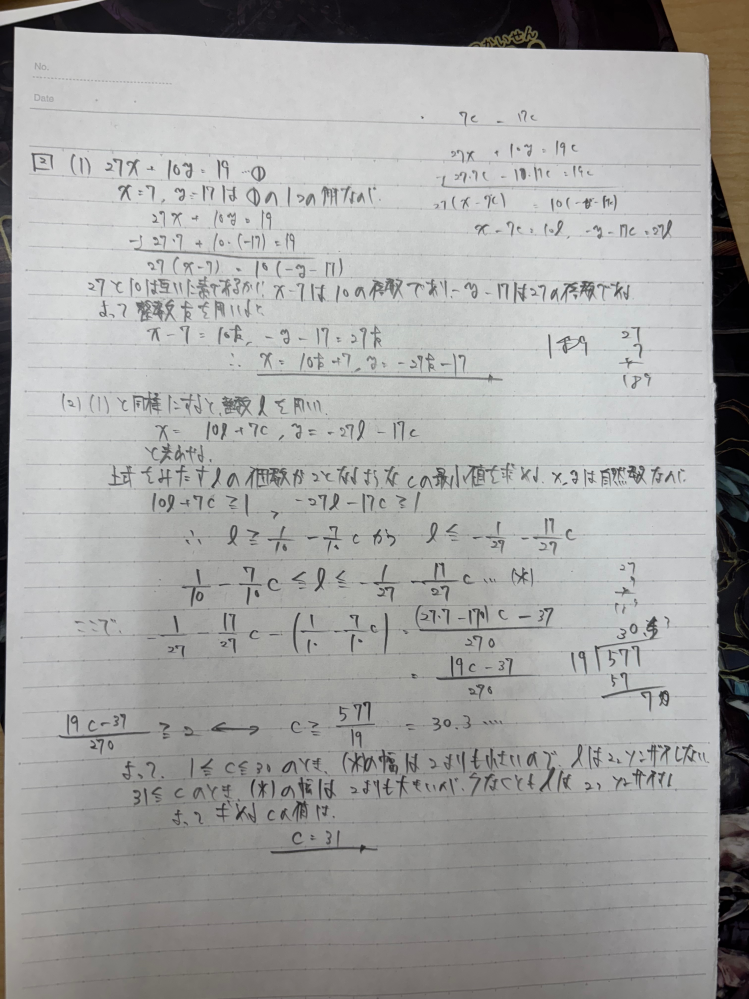 かいせん
No.
Date
7c - 17c
27x + 10y = 19c
-) 27・7c - 10・17c = 19c
27(x-7c) = 10(-y-17c)
x-7c = 10l, -y-17c = 27l
2 (1) 27x + 10y = 19 …①
x=7, y=-17は①の1つの解なので.
27x + 10y = 19
-) 27・7 + 10・(-17) = 19
27(x-7) = 10(-y-17)
27と10は互いに素であるから, x-7は10の倍数であり, -y-17は27の倍数である
よって整数kを用いると
x-7=10k, -y-17=27k
∴ x=10k+7, y=-27k-17
189
27
7
189
(2) (1)と同様にすると, 整数lを用い.
x= 10l+7c, y=-27l-17c
と表わせる.
上式をみたすlの個数が2となるようなcの最小値を求める. x, yは自然数なので.
10l+7c≧1, -27l-17c≧1
∴ l≧1/10 - 7/10 c から l≦ -1/27 - 17/27 c
1/10 - 7/10 c ≦ l ≦ -1/27 - 17/27 c … (*)
27
ここで. -1/27 - 17/27 c - (1/10 - 7/10 c) = (27・7-170)c-37 / 270
= 19c-37 / 270
30.
19)577
57
7
19c-37 / 270 ≧ 2 ⟷ c≧ 577/19 = 30.3 ….
よって. 1≦c≦30のとき, (*)の幅は2よりも小さいので. lは2つ存在しない
31≦cのとき, (*)の幅は2よりも大きいので. 少なくともlは2つ存在し
よって求めるcの値は.
c=31